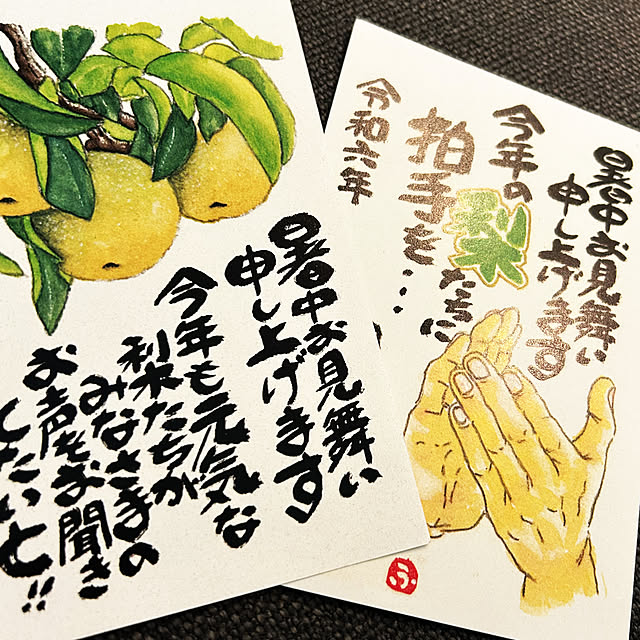 暑中お見舞い
申し上げます
今年の梨たちに
拍手を…
令和六年
ふ
暑中お見舞い
申し上げます
今年も元気な
梨たちが
みなさまの
お声をお聞き
したいと!!